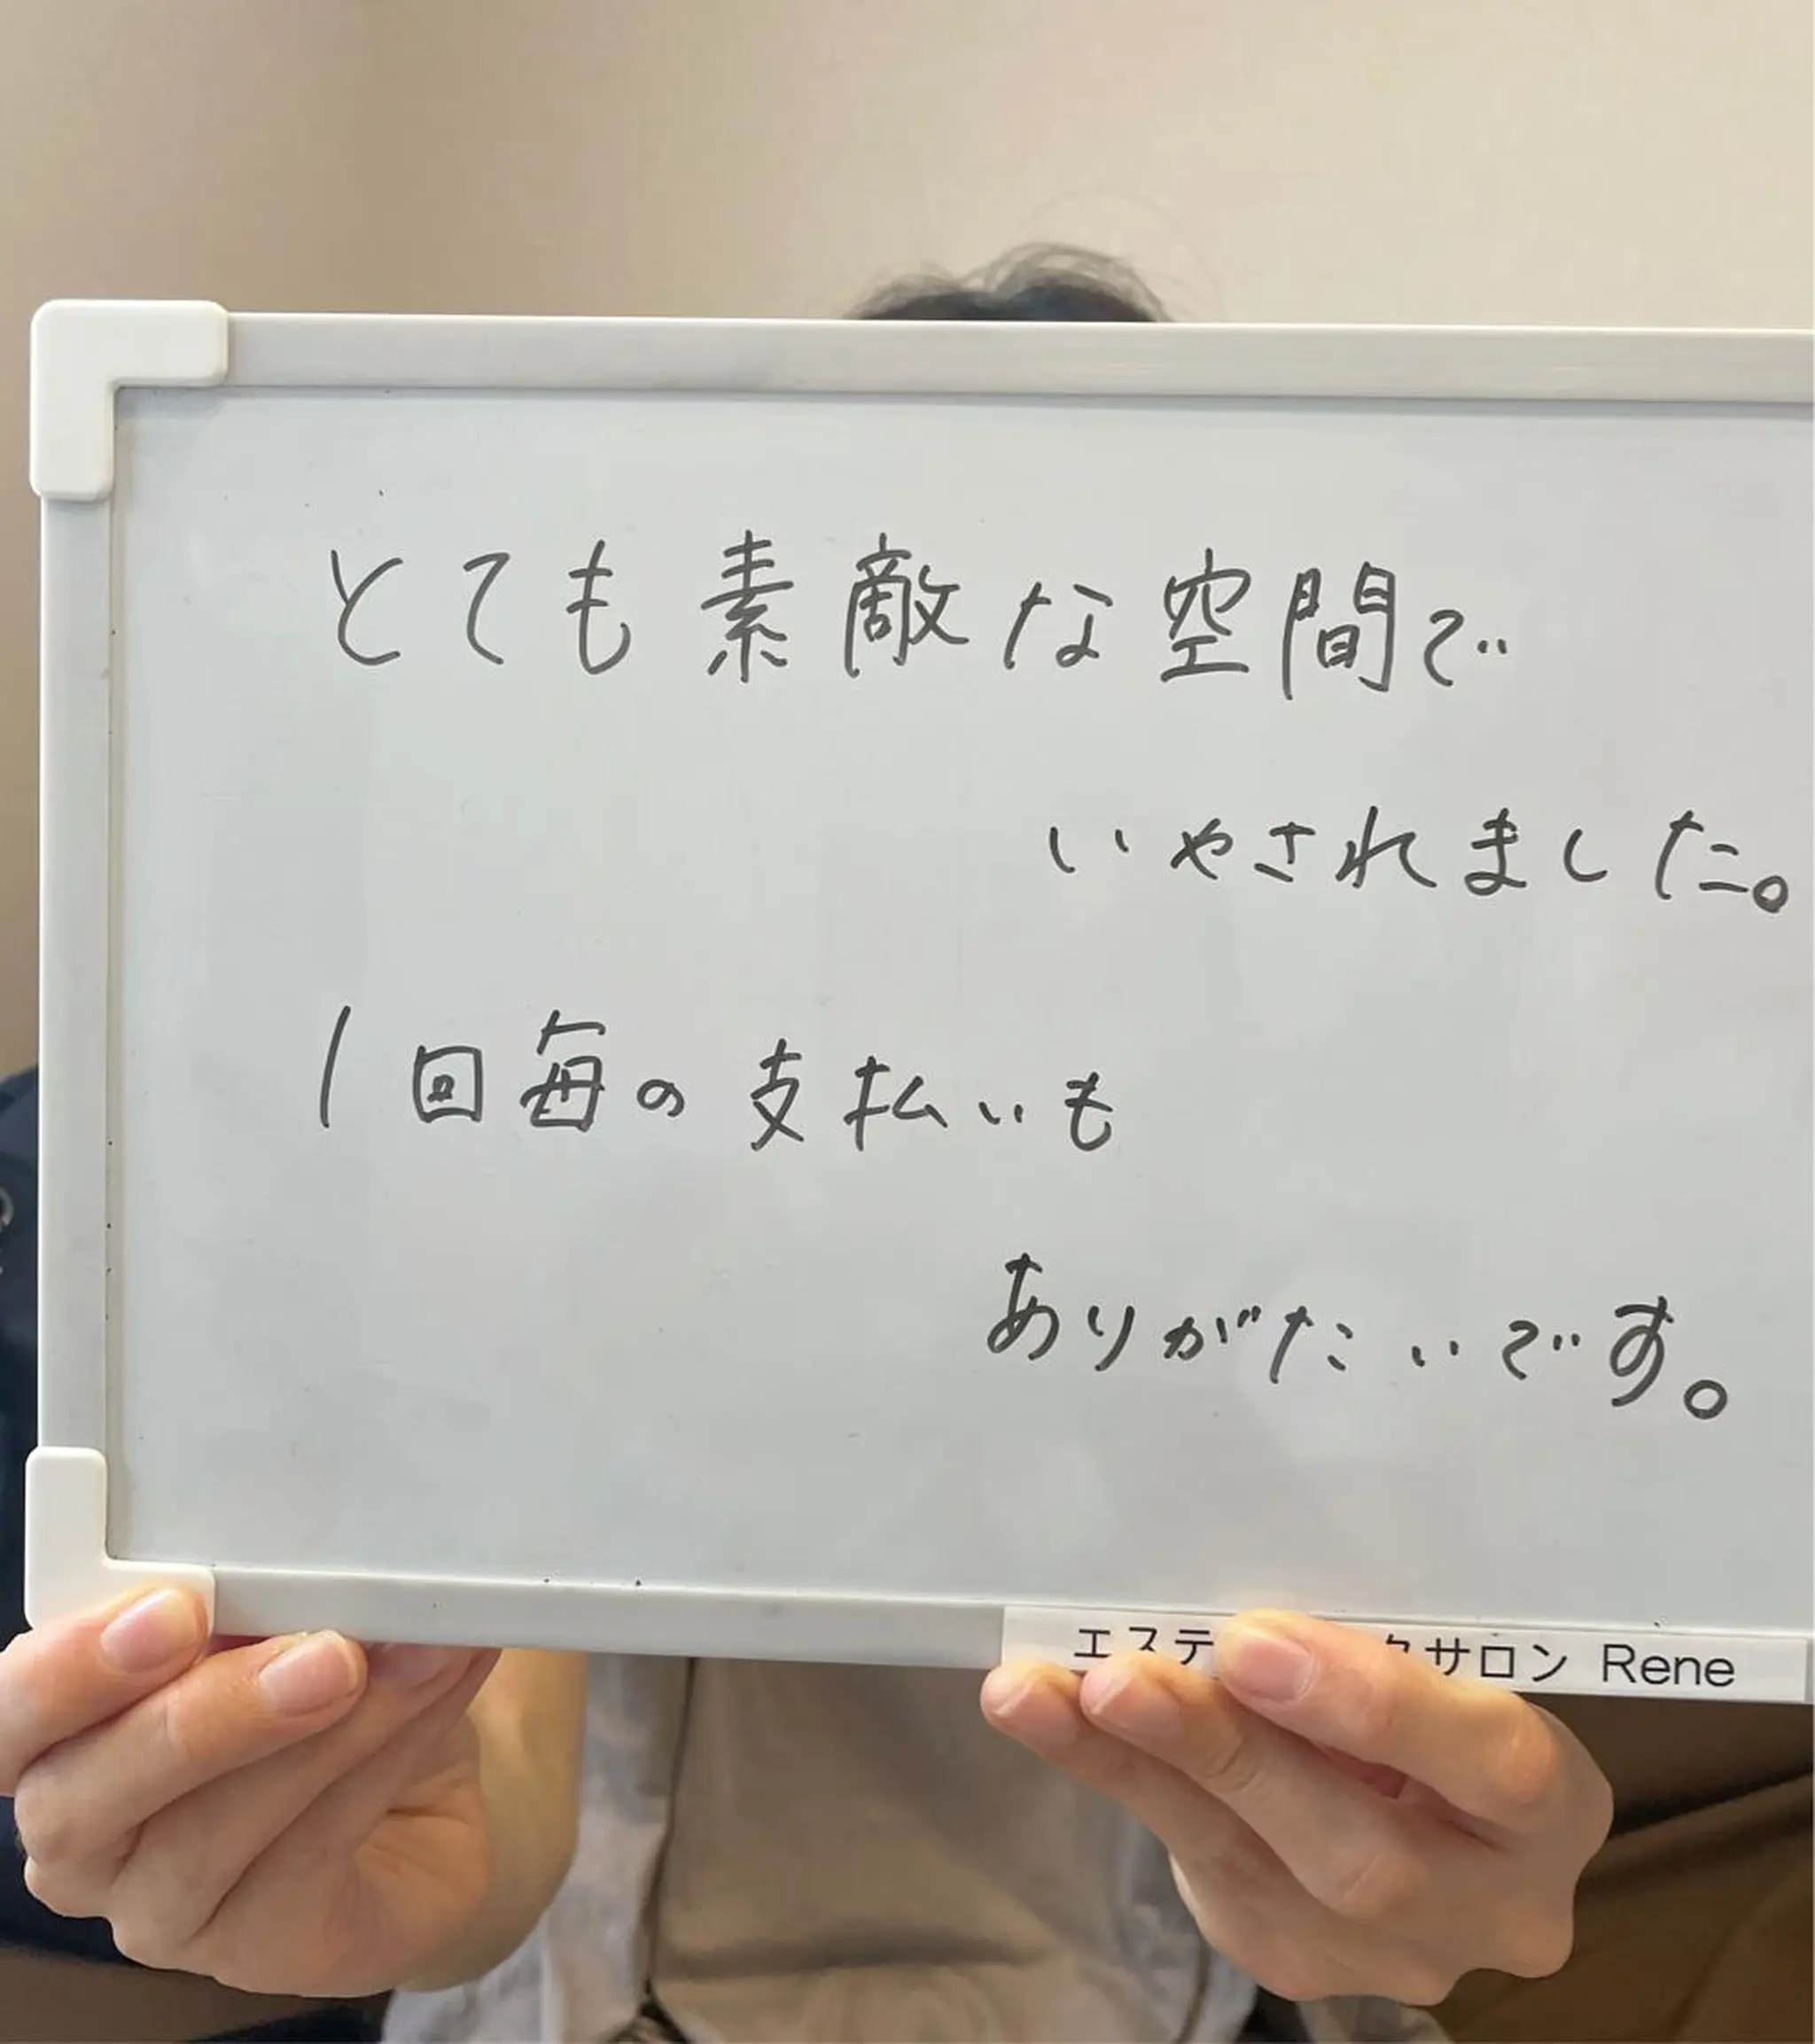 とても素敵な空間で
いやされました。
1回毎の支払いも
ありがたいです。
エステ クサロン Rene